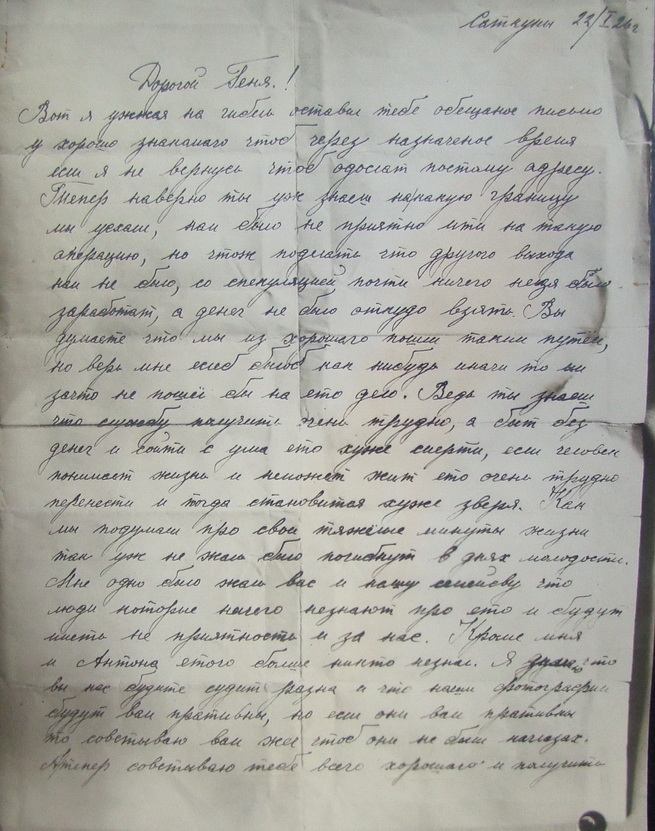 Саткуны 22/I 26 г
Дорогой Геня.!
Вот я ужжая на гибель оставил тебе обещаное письмо
у хорошо знакамаго чтоб через назначеное время
если я не вернусь чтоб одослат постому адресу.
Тепер наверно ты уж знаеш накакую границу
мы уехали, нам было не приятно итти на такую
операцию, но чтож поделать что другого выхода
нам не было, со спекуляцией почти ничего незя было
заработат, а денег не было откудо взять. Вы
думаете что мы из хорошаго пошли таким путем,
но верь мне еслеб былоб как нибудь иначи то ми
зачто не пошли бы на ето дело. Ведь ты знаеш
что службу получить очень трудно, а быт без
денег и сойти с ума ето хуже смерти, если человек
понимает жизнь и неможет жит ето очень трудно
перенести и тогда становится хуже зверя. Как
мы подумали про свои тяжолые минуты жизни
так уж не жаль было погибнут в днях молодости.
Мне одно было жаль вас и нашу семейсву что
люди которые ничего незнают про ето и будут
иметь не приятность и за нас. Кроме мня
и Антона етого больше никто незнал. Я думаю, что
вы нас будите судит разна и что наши фотографии
будут вам пративны, но если они вам пративны
то советываю вам жеч чтоб они не были наглазах.
Атепер советываю тебе всего хорошаго и получить